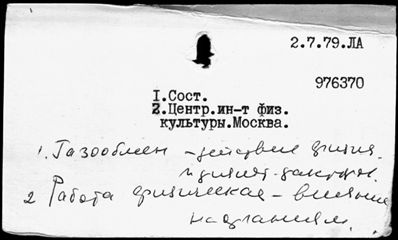 2.7.79.ЛА
976370
1.Сост.
2.Центр.ин-т физ.
культуры.Москва.
1. Газообмен - действие физич.
2 Работа физическая - влияние
на организм.